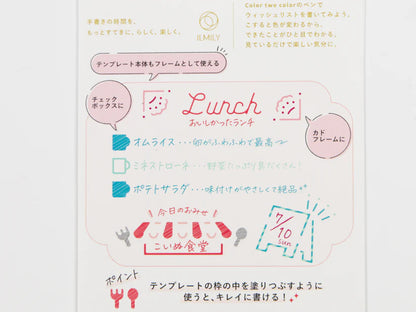 手書きの時間を、
もっとすてきに、らしく、楽しく。
ILMILY
Color two colorのペンで
ウィッシュリストを書いてみよう。
こすると色が変わるから、
できたことがひと目でわかる。
見ているだけで楽しい気分に。
テンプレート本体もフレームとして使える
チェック
ボックスに
Lunch
おいしかったランチ
カド
フレームに
オムライス・・・卵がふわふわで最高
ミネストローネ・・・野菜たっぷり具だくさん!
ポテトサラダ・・・味付けがやさしくて絶品
今日のおみせ
こいぬ食堂
7/10
sun
ポイント
テンプレートの枠の中を塗りつぶすように
使うと、キレイに書ける!